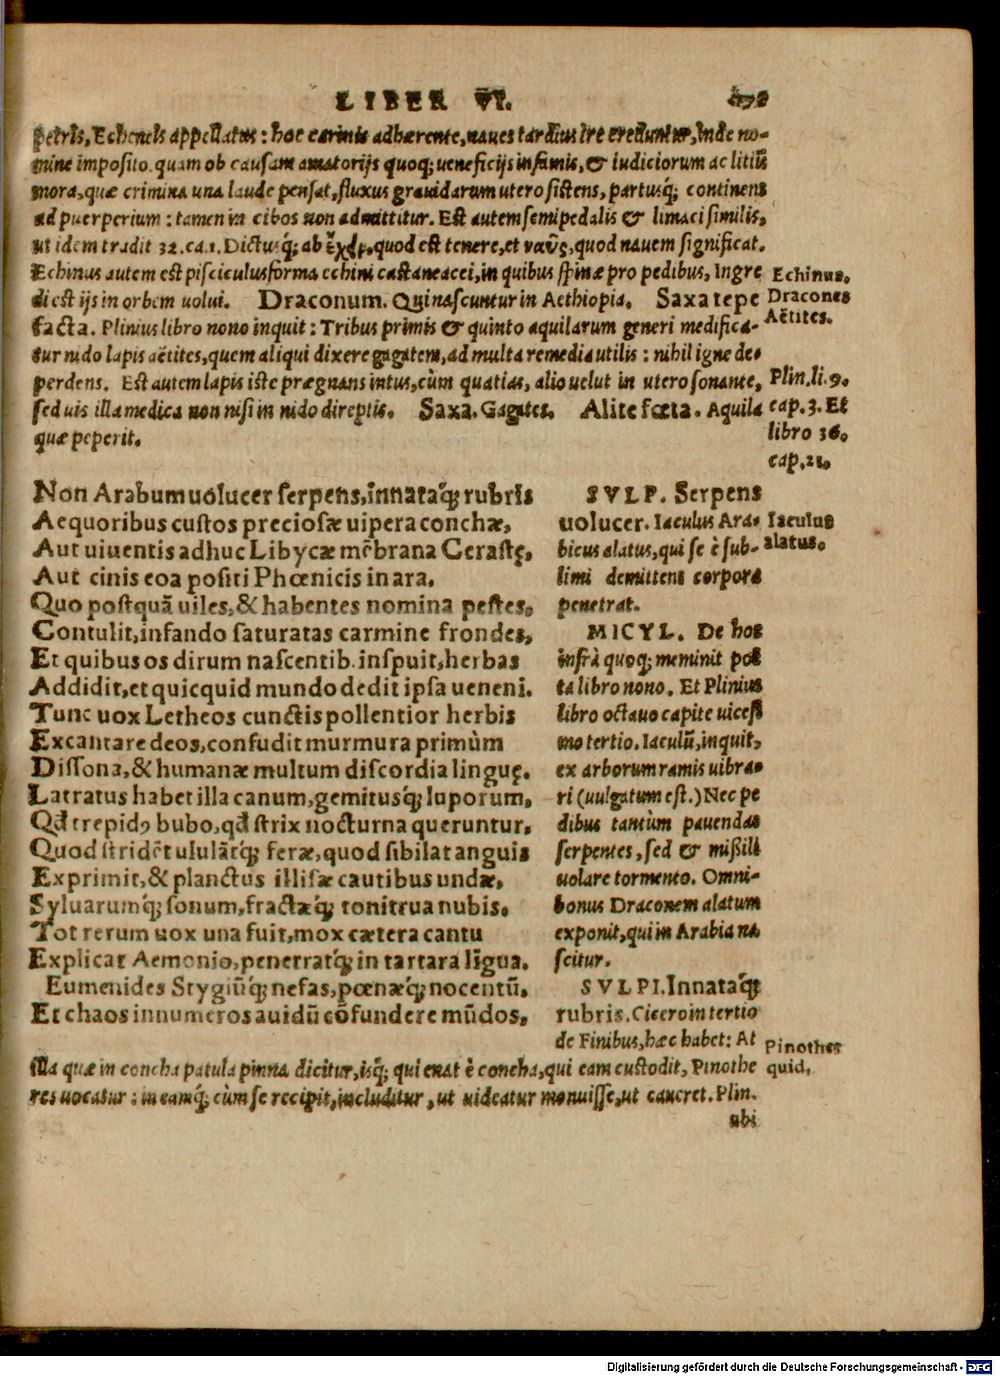 LIBER VI.
petris, Echeneis appellatus: hoc carinis adhærente, naues tardius ire creduntur, inde no-
mine imposito. quam ob causam amatorijs quoq; ueneficijs infamis, & iudiciorum ac litiũ
mora, quæ crimina una laude pensat, fluxus grauidarum utero sistens, partusq́; continens
ad puerperium: tamen in cibos non admittitur. Est autem semipedalis & limaci similis,
ut idem tradit 32. ca. 1. Dictusq́; ab ἔχειν, quod est tenere, et ναῦς, quod nauem significat.
Echinus autem est pisciculus forma echini castaneacei, in quibus spinæ pro pedibus, Ingre
di est ijs in orbem uolui. Draconum. Qui nascuntur in Aethiopia. Saxa tepe
facta. Plinius libro nono inquit: Tribus primis & quinto aquilarum generi medifica-
tur nido lapis aëtites, quem aliqui dixere gagatem, ad multa remedia utilis: nihil igne de-
perdens. Est autem lapis iste prægnans intus, cùm quatias, alio uelut in utero sonante,
sed uis illa medica non nisi in nido direptis. Saxa. Gagates. Alite fœta. Aquila
quæ peperit.
Echinus.
Dracones
Aëtites.
Plin. li. 9.
cap. 3. Et
libro 36.
cap. 21.
Non Arabum uolucer serpens, innataq́; rubris
Aequoribus custos preciosæ uipera conchæ,
Aut uiuentis adhuc Libycæ mẽbrana Cerastę,
Aut cinis eoa positi Phœnicis in ara.
Quo postquã uiles, & habentes nomina pestes,
Contulit, infando saturatas carmine frondes,
Et quibus os dirum nascentib. inspuit, herbas
Addidit, et quicquid mundo dedit ipsa ueneni.
Tunc uox Letheos cunctis pollentior herbis
Excantare deos, confudit murmura primùm
Dissona, & humanæ multum discordia linguę.
Latratus habet illa canum, gemitusq́; luporum,
Qđ trepidꝯ bubo, qđ strix nocturna queruntur,
Quod stridẽt ululãtq́; feræ, quod sibilat anguis
Exprimit, & planctus illisæ cautibus undæ,
Syluarumq́; sonum, fractæq́; tonitrua nubis.
Tot rerum uox una fuit, mox cætera cantu
Explicat Aemonio, penetratq́; in tartara lĩgua.
Eumenides Stygiũq́; nefas, pœnæq́; nocentũ,
Et chaos innumeros auidũ cõfundere mũdos,
SVLP. Serpens
uolucer. Iaculus Ara-
bicus alatus, qui se è sub-
limi demittens corpora
penetrat.
MICYL. De hoc
infrà quoq; meminit poë
ta libro nono. Et Plinius
libro octauo capite uicesi
mo tertio. Iaculũ, inquit,
ex arborum ramis uibra-
ri (uulgatum est.) Nec pe
dibus tantùm pauendas
serpentes, sed & missili
uolare tormento. Omni-
bonus Draconem alatum
exponit, qui in Arabia na
scitur.
SVLPI. Innataq́;
rubris. Cicero in tertio
de Finibus, hæc habet: At
Iaculus
alatus.
illa quæ in concha patula pinna dicitur, isq́; qui enat è concha, qui eam custodit, Pinothe
res uocatur: in eamq́; cùm se recipit, includitur, ut uideatur monuisse, ut caueret. Plin.
ubi
Pinotheres
quid.
Digitalisierung gefördert durch die Deutsche Forschungsgemeinschaft - DFG